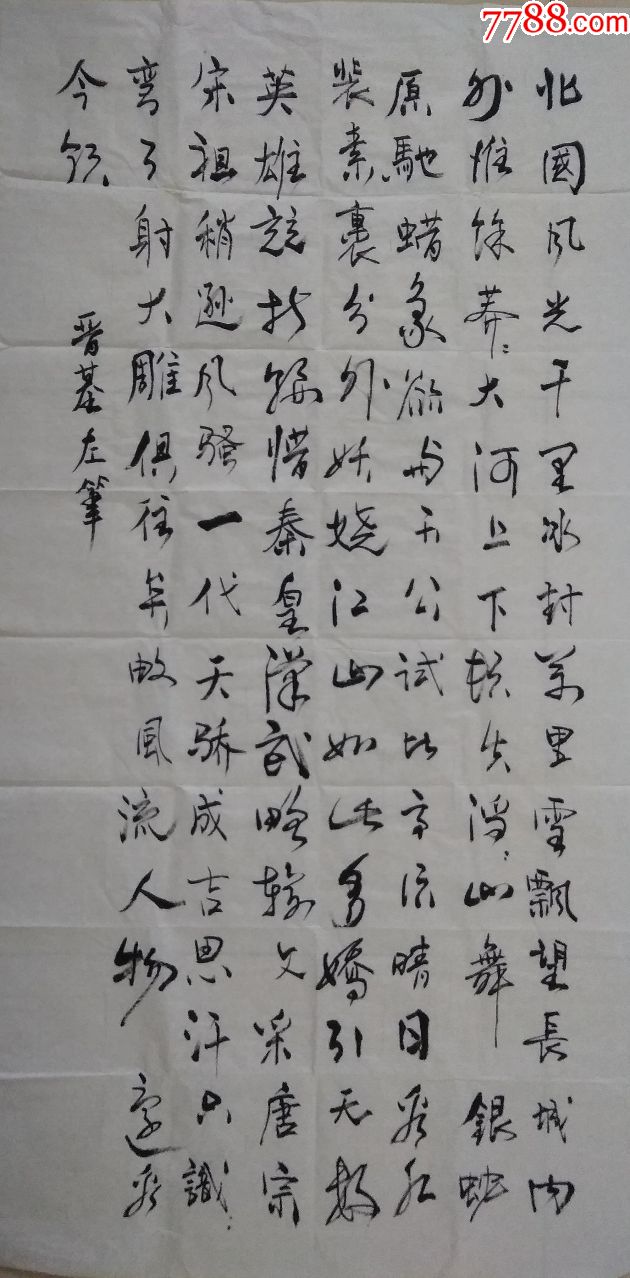 7788.com
中国收藏热线
北國风光千里冰封萬里雪飄望長城内
外惟馀莽々大河上下顿失滔々山舞銀蛇
原馳蜡象欲与天公試比高须晴日看红
裝素裹分外妖娆江山如此多嬌引无数
英雄競折腰惜秦皇漢武略输文采唐宗
宋祖稍遜风騷一代天骄成吉思汗只識
弯弓射大雕俱往矣数風流人物還看
今朝
晋基左筆